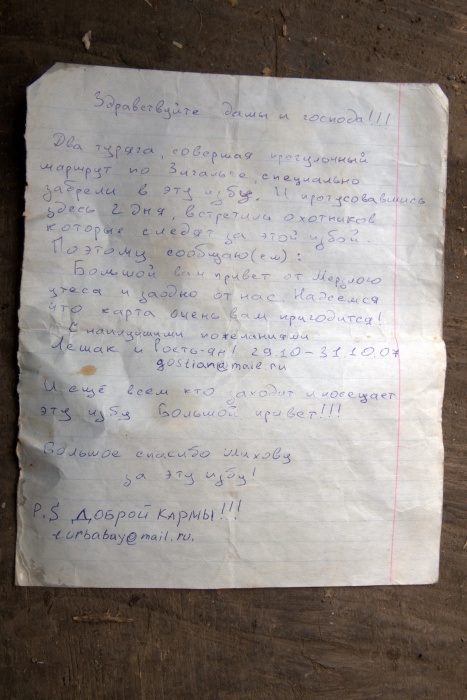 Здравствуйте дамы и господа!!!
Два туряга, совершая прогулочный
маршрут по Зигальге, специально
забрели в эту избу. И протусовавшись
здесь 2 дня, встретили охотников
которые следят за этой избой.
Поэтому сообщаю(ем):
Большой вам привет от Мёрзлого
утёса и заодно от нас. Надеемся
что карта очень вам пригодится!
С наилучшими пожеланиями
Лешак и Гость-ян! 29.10-31.10.07
gostian@mail.ru
И ещё всем кто заходит и посещает
эту избу Большой привет!!!
Большое спасибо
за эту избу!
P.S ДОБРОЙ КАРМЫ!!!
turbabay@mail.ru.